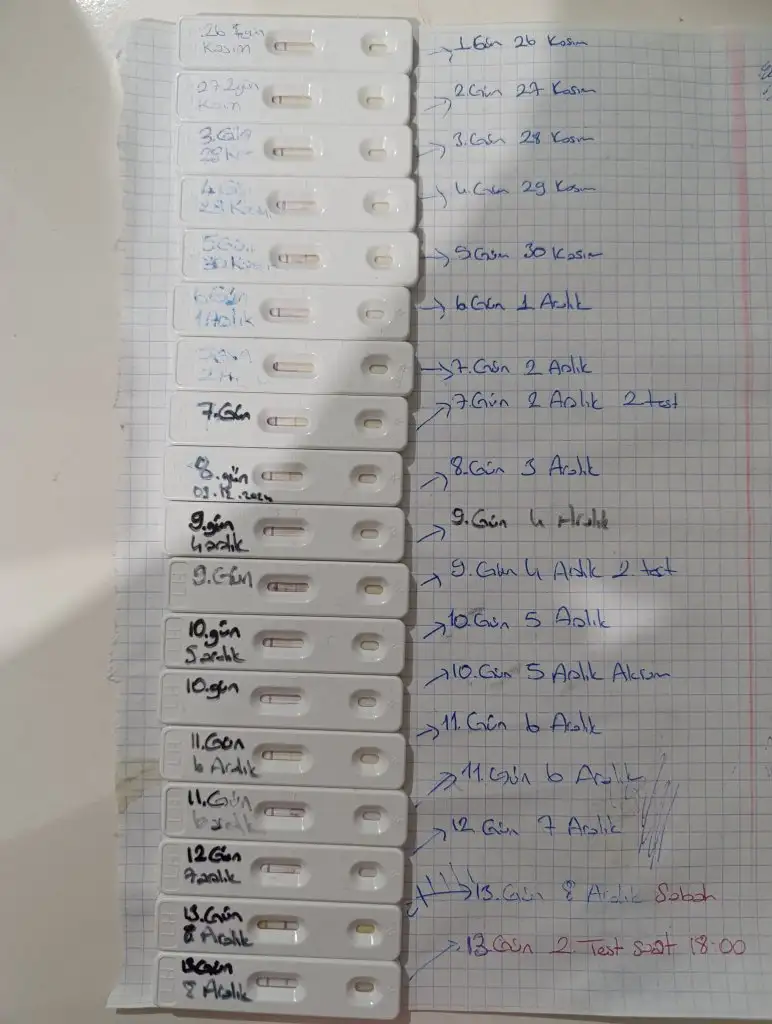 26
Kasım
1.Gün 26 Kasım
27 2.gün
Kasım
2.Gün 27 Kasım
3.Gün
28 K
3.Gün 28 Kasım
29 Kası
4.Gün 29 Kasım
5.Gün
30 Kas
5.Gün 30 Kasım
6.Gün
1 Aralık
6.Gün 1 Aralık
7.Gün 2 Aralık
7.Gün
7.Gün 2 Aralık 2 test
8.gün
8.Gün 3 Aralık
9.gün
4 aralık
9.Gün 4 Aralık
9.Gün
9.Gün 4 Aralık 2.test
10.gün
5 aralık
10.Gün 5 Aralık
10.gün
10.Gün 5 Aralık Akşam
11.Gün
6 Aralık
11.Gün 6 Aralık
11.Gün
6 aralık
11.Gün 6 Aralık
12 Gün
7 aralık
12.Gün 7 Aralık
13.Gün
8 Aralık
13.Gün 8 Aralık Sabah
13 Gün
8 Aralık
13.Gün 2. Test saat 18:00